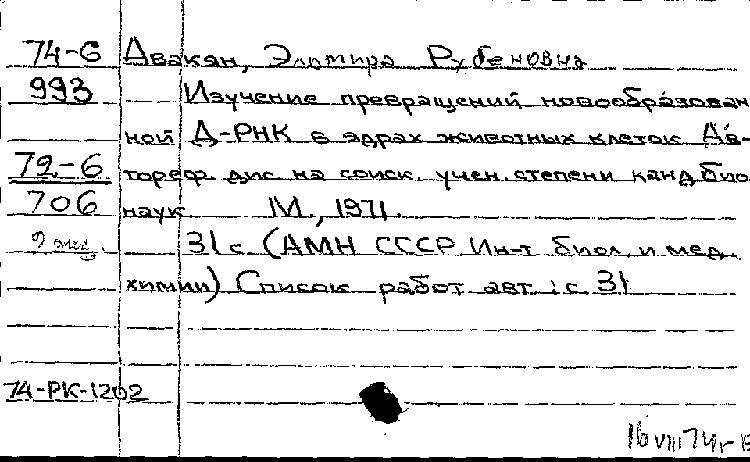 74-6 Авакян, Эльмира Рубеновна
993 Изучение превращений новообразован
ной Д-РНК в ядрах животных клеток Ав-
72-6 тореф. дис на соиск. учен. степени канд. био.
706 наук М., 1971.
31 с. (АМН СССР Ин-т биол. и мед.
химии) Список работ авт.: с. 31
74-РК-1202
16 VIII 74г